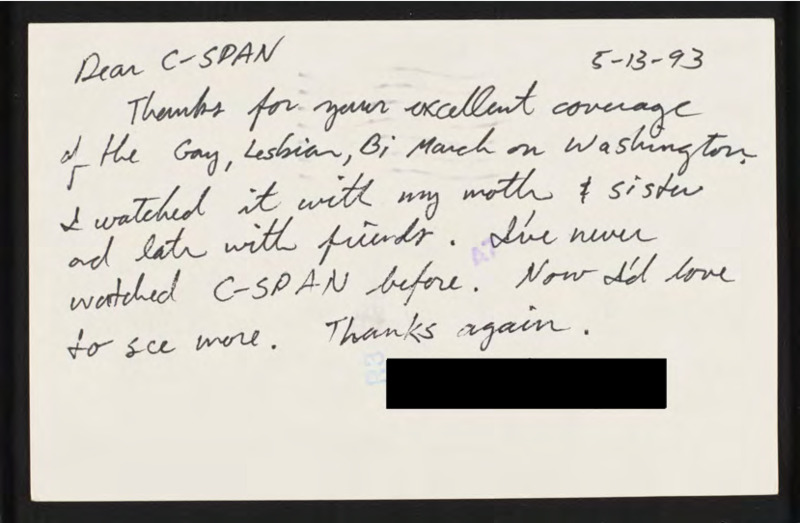 Dear C-SPAN 5-13-93
Thanks for your excellent coverage
of the Gay, Lesbian, Bi March on Washington.
I watched it with my mother & sister
and later with friends. I've never
watched C-SPAN before. Now I'd love
to see more. Thanks again.